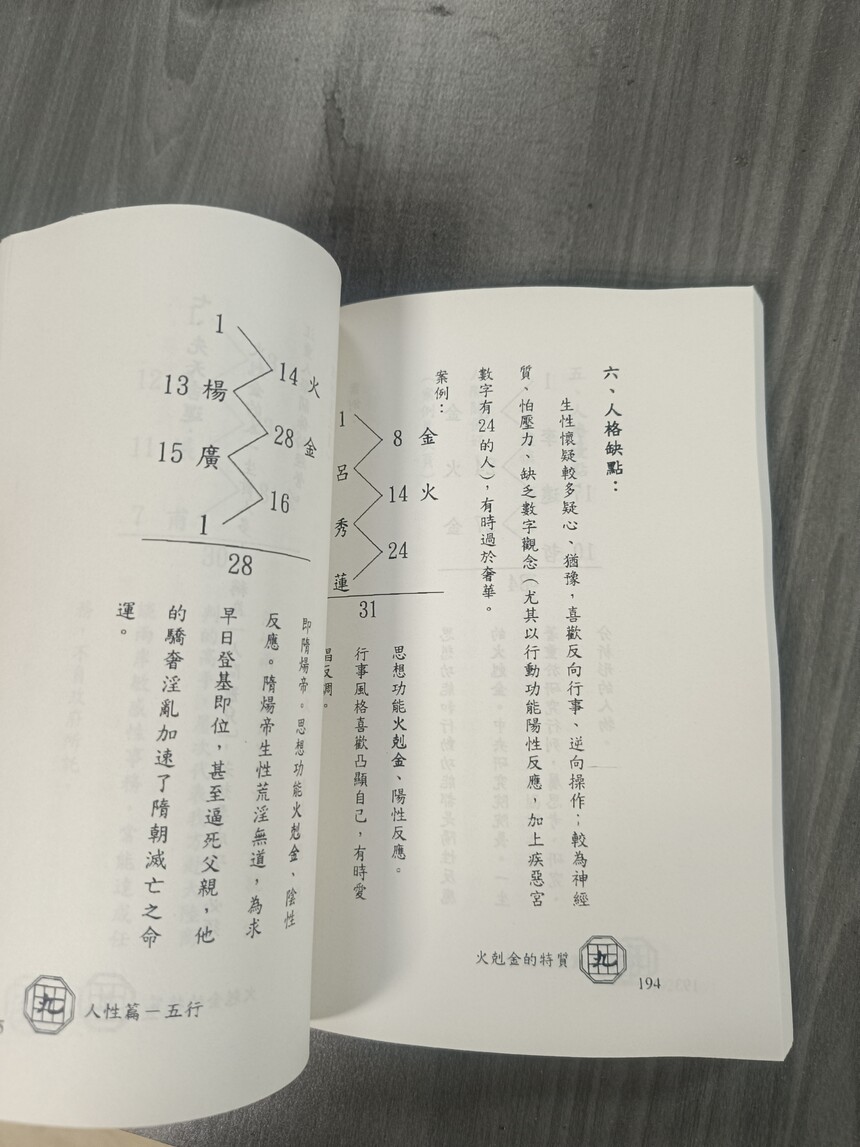 六、人格缺點：
生性懷疑較多疑心、猶豫，喜歡反向行事、逆向操作；較為神經
質、怕壓力、缺乏數字觀念（尤其以行動功能陽性反應，加上疾惡宮
數字有24的人），有時過於奢華。
案例：
1
8 金
呂
14 火
秀
24
蓮
31
思想功能火剋金、陽性反應。
行事風格喜歡凸顯自己，有時愛
唱反調。
火剋金的特質
九
194
1
14 火
13 楊
28 金
15 廣
16
1
28
即隋煬帝。思想功能火剋金、陰性
反應。隋煬帝生性荒淫無道，為求
早日登基即位，甚至逼死父親，他
的驕奢淫亂加速了隋朝滅亡之命
運。
九
人性篇－五行